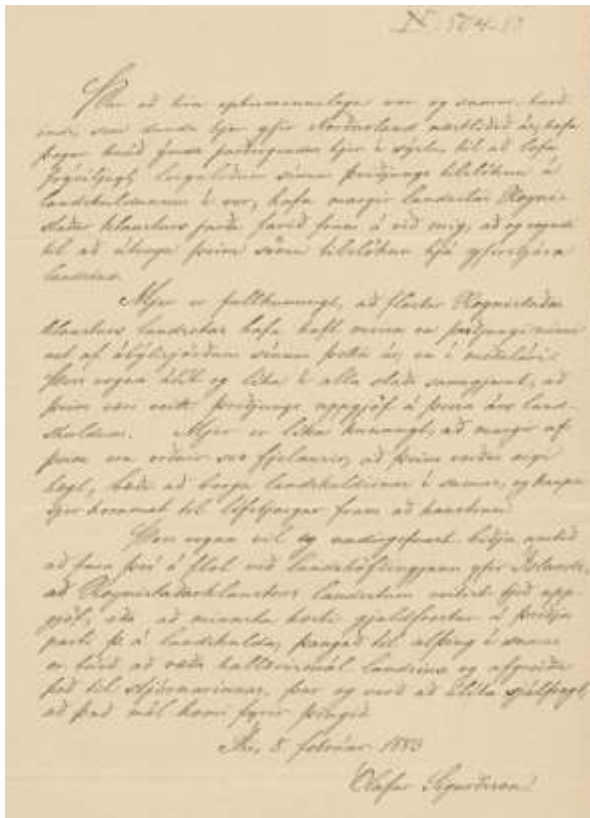 N. 504-83
Þar eð hin og vor og sumar, hard
indi, sem dundu hjer yfir Norðurland næstliðið ár, hafa
þegar knúð jarðeigendur hjer í sýslu, til að lofa
sínum þriðjungs tilslökun á
landskuldunum í vor, hafa margir landsetar Reyni-
staðar klausturs jarða farið fram á við mig, að jeg reyndi
til að útvega þeim sömu tilslökun hjá yfirstjórn
landsins.
Mjer er fullkunnugt, að flestir Reynistaðar
klausturs landsetar hafa haft meira en þriðjungi minni
not af ábýlisjörðum sínum þetta ár, en í meðalári.
Þess vegna álít jeg líka í alla staði sanngjarnt, að
þeim væri veitt þriðjungs uppgjöf á þessa árs land-
skuldum. Mjer er líka kunnugt, að margir af
þeim eru orðnir svo fjelausir, að þeim verður eigi
hægt, bæði að borga landskuldirnar í sumar, og kaupa
sjer kornmat til lífsbjargar fram að haustinu.
Þess vegna vil jeg undirgefnast biðja amtið
að fara því á flot við landshöfðingjann yfir Íslandi,
að Reynistaðarklausturs landsetum verði ljeð upp-
gjöf, eða að minnsta kosti gjaldfrestur á þriðja
parti þ. á. landskulda, þangað til alþing í sumar
er búið að ræða hallærismál landsins og afgreiða
það til stjórnarinnar, þar jeg verð að álíta sjálfsagt,
að það mál komi fyrir þingið.
Ási, 8. febrúar 1883
Ólafur Sigurðsson